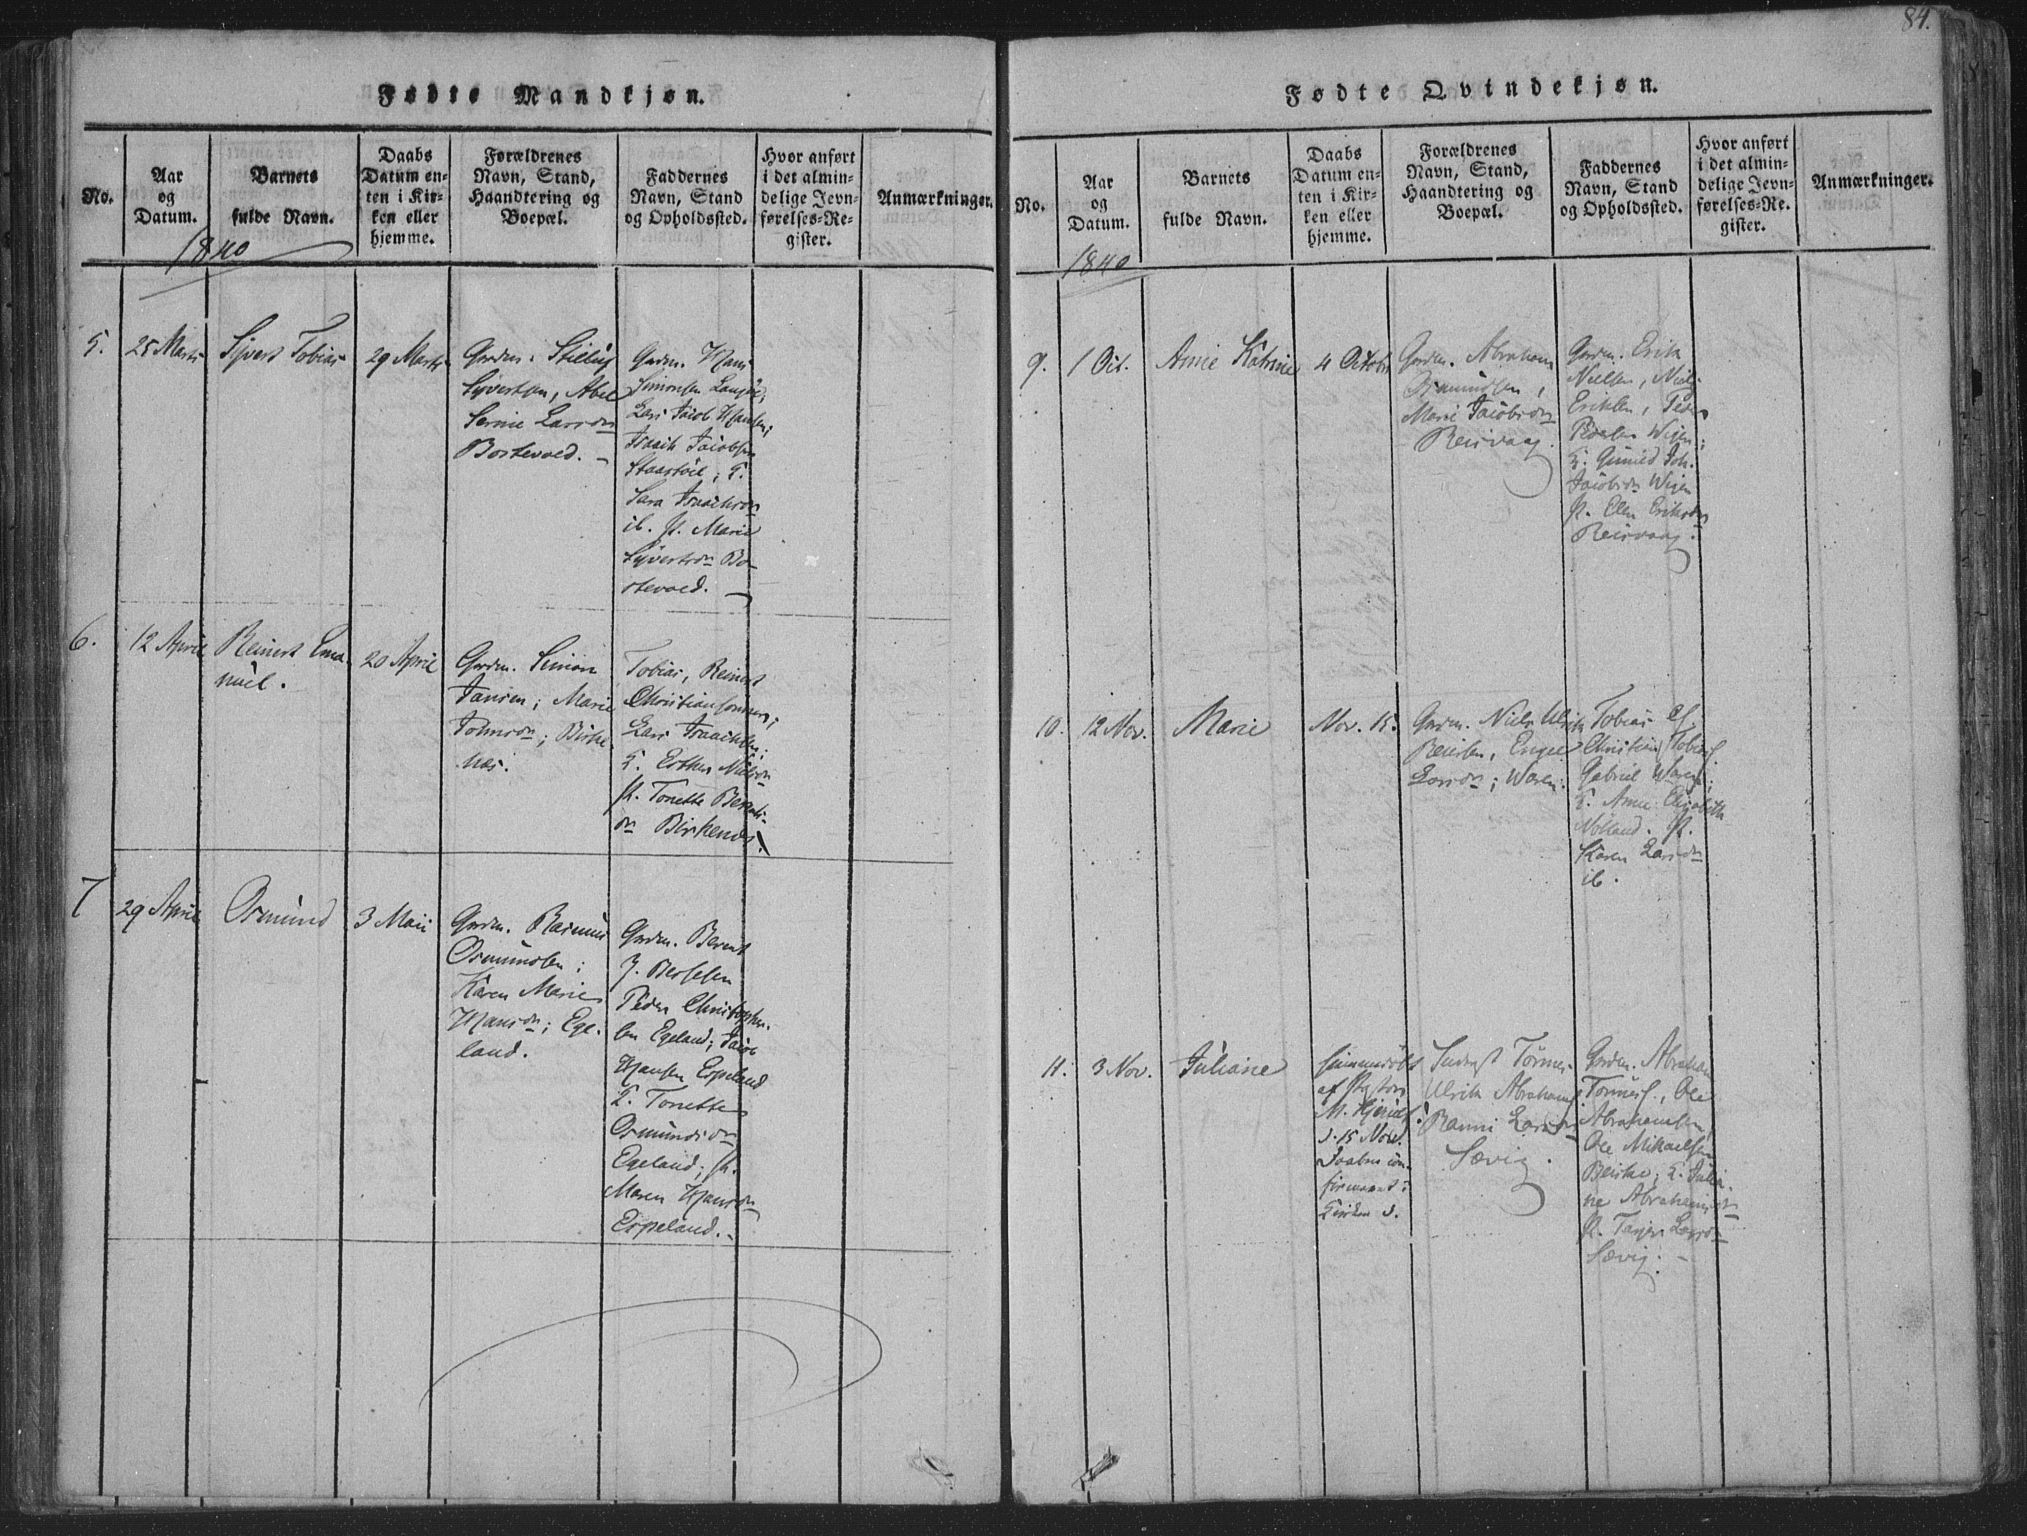 84.
Fødte Mandkjøn.
No.
Aar
og
Datum.
Barnets
fulde Navn.
Daabs
Datum en-
ten i Kir-
ken eller
hjemme.
Forældrenes
Navn, Stand,
Haandtering og
Boepæl.
Faddernes
Navn, Stand
og Opholdssted.
Hvor anført
i det almin-
delige Jevn-
førelses-Re-
gister.
Anmærkninger.
1840
5.
25 Marts
Syvert Tobias
29 Marts
Grdm. Stilluf
Syvertsen, Abel
Serine Larsdn
Bostevold.
Grdm. Hans
Simonsen
Lars Jacob Hansen;
Isaach Jacobsen
Staastöil; F.
Sara Isaachsdn
ib. P. Marie
Syvertsdn Bo-
stevold.
6.
12 April
Reinert Ema-
nuel.
20 April
Grdm. Simon
Jansen; Marie
Johnsdn; Birke-
næs.
Tobias, Reinert
Christiansønner;
Lars Isaachsen;
F. Esther Nielsdn
P. Tonette
Birkenæs.
7
29 April
Osmund
3 Maii
Grdm. Rasmus
Osmundsen;
Karen Marie
Hansdn; Ege-
land.
Grdm. Berent
J. Berntsen
Peder Christopher-
sen Egeland; Jacob
Hansen Espeland
F. Tonette
Osmundsdn
Egeland; P.
Maren Hansdn
Espeland.
Fødte Qvindekjøn.
No.
Aar
og
Datum.
Barnets
fulde Navn.
Daabs
Datum en-
ten i Kir-
ken eller
hjemme.
Forældrenes
Navn, Stand,
Haandtering og
Boepæl.
Faddernes
Navn, Stand
og Opholdssted.
Hvor anført
i det almin-
delige Jevn-
førelses-Re-
gister.
Anmærkninger.
1840
9.
1 Oct.
Anne Katrine
4 Octobr
Grdm. Abraham
Osmundsen,
Marie Jacobsdn
Reisvaag.
Grdm. Erik
Nielsen, Niels
Eriksen, Peder
Pedersen Wigen;
F. Gunild Joh.
Jacobsdn Wigen
P. Elen Eriksdn
Reisvaag.
10.
12 Nov.
Marie
Nov. 15.
Grdm. Niels Ulrik
Reiersen, Engel
Larsdn; Waren.
Tobias
Christian Tobias.
Gabriel Waren;
F. Anne Elisabeth
Nolland. P.
Karen Larsdn
ib.
11.
3 Nov.
Juliane
hjemmedøbt
af Pastor
M.
d. 15 Nov.
Daaben con-
firmeret i
Kirken d.
Tønnes
Ulrik Abrahams.
Ranni Larsdn
Sævig.
Grdm. Abraham
Tønnes., Ole
Abrahamsen,
Ole Mikaelsen
Beiske; F. Julia-
ne Abrahamsdn
P. Tarjer Larsdn
Sævig.